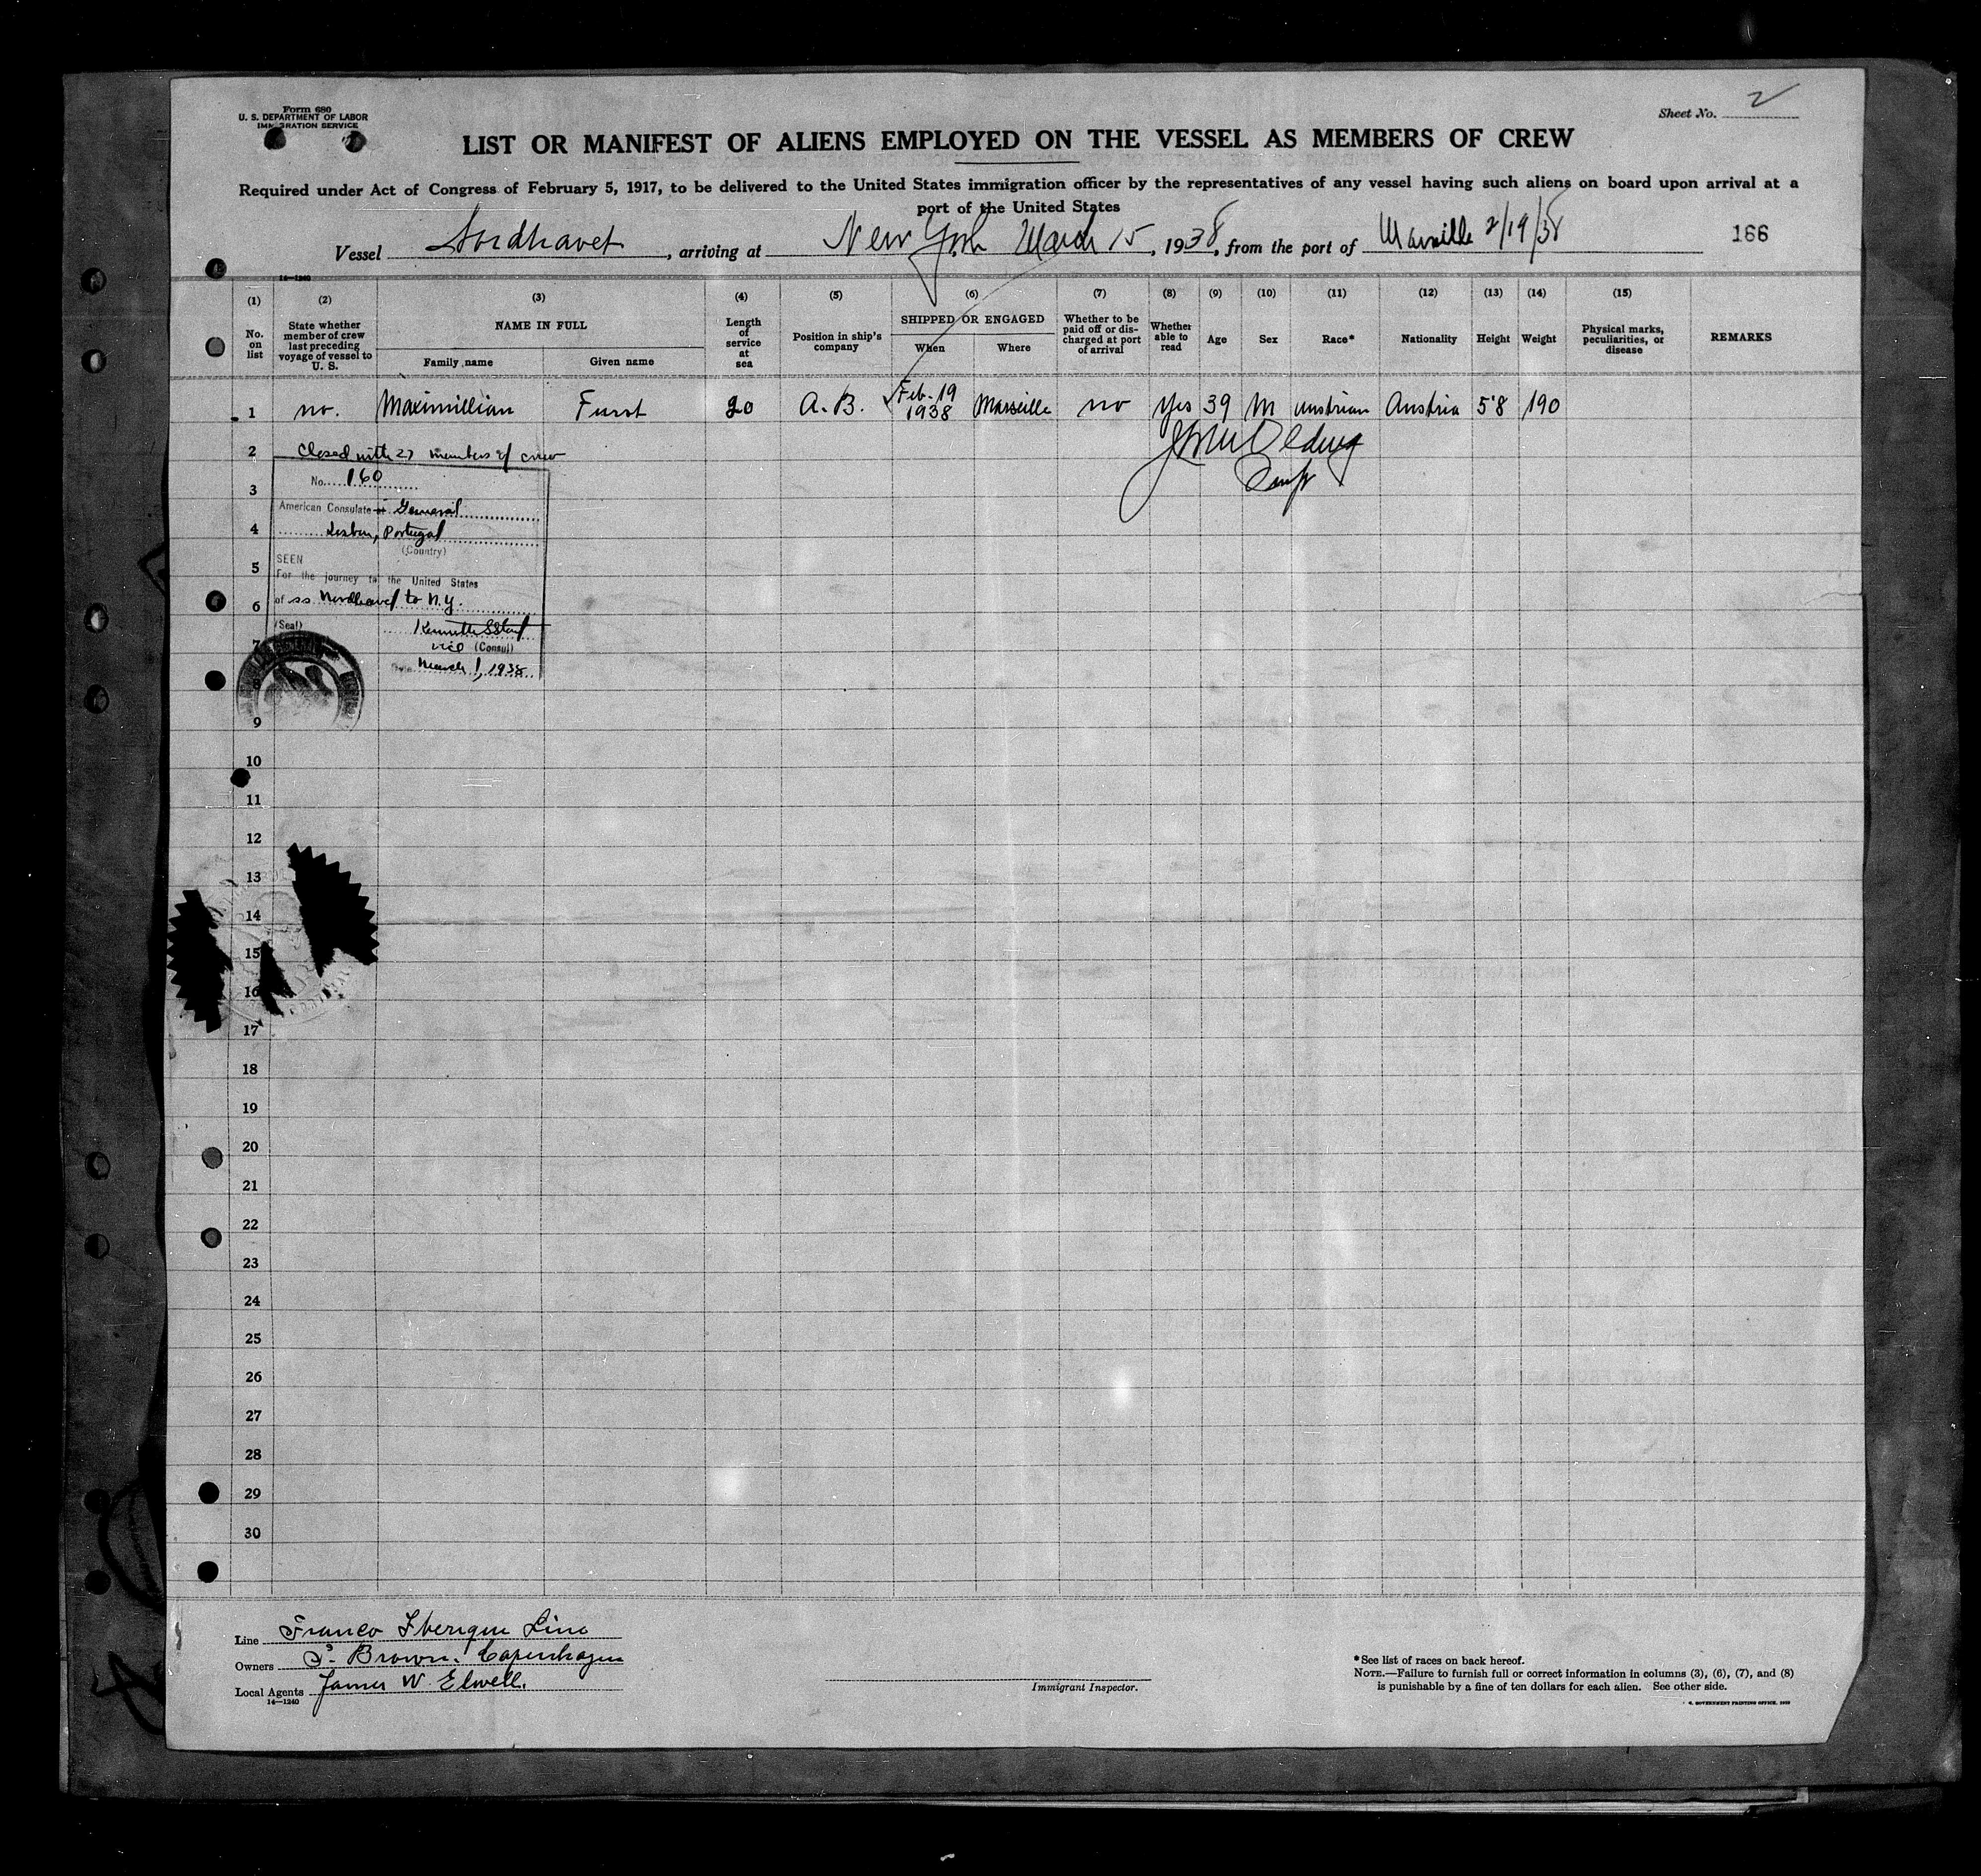 Form 680
U. S. DEPARTMENT OF LABOR
IMMIGRATION SERVICE
Sheet No. 2
LIST OR MANIFEST OF ALIENS EMPLOYED ON THE VESSEL AS MEMBERS OF CREW
Required under Act of Congress of February 5, 1917, to be delivered to the United States immigration officer by the representatives of any vessel having such aliens on board upon arrival at a
port of the United States
Vessel Nordhavet, arriving at New York March 15, 1938, from the port of Marseille 2/19/38
166
14—1240
(1) (2) (3) (4) (5) (6) (7) (8) (9) (10) (11) (12) (13) (14) (15)
No. on list
State whether member of crew last preceding voyage of vessel to U. S.
NAME IN FULL
Family name
Given name
Length of service at sea
Position in ship's company
SHIPPED OR ENGAGED
When
Where
Whether to be paid off or discharged at port of arrival
Whether able to read
Age
Sex
Race*
Nationality
Height
Weight
Physical marks, peculiarities, or disease
REMARKS
1 no. Maximillian Furst 20 A.B. Feb-19 1938 Marseille no yes 39 M austrian Austria 5'8 190
2 Closed with 27 members of crew
3 No. 160
American Consulate General
4 Lisbon, Portugal
(Country)
5 SEEN
For the journey to the United States
6 of ss Nordhavet to N.Y.
(Seal)
7 vice (Consul)
Date March 1, 1938
8
9
10
11
12
13
14
15
16
17
18
19
20
21
22
23
24
25
26
27
28
29
30
Line Franco Iberique Line
Owners J. Brown. Copenhagen
Local Agents James W Elwell.
14—1240
Immigrant Inspector.
*See list of races on back hereof.
NOTE.—Failure to furnish full or correct information in columns (3), (6), (7), and (8)
is punishable by a fine of ten dollars for each alien. See other side.